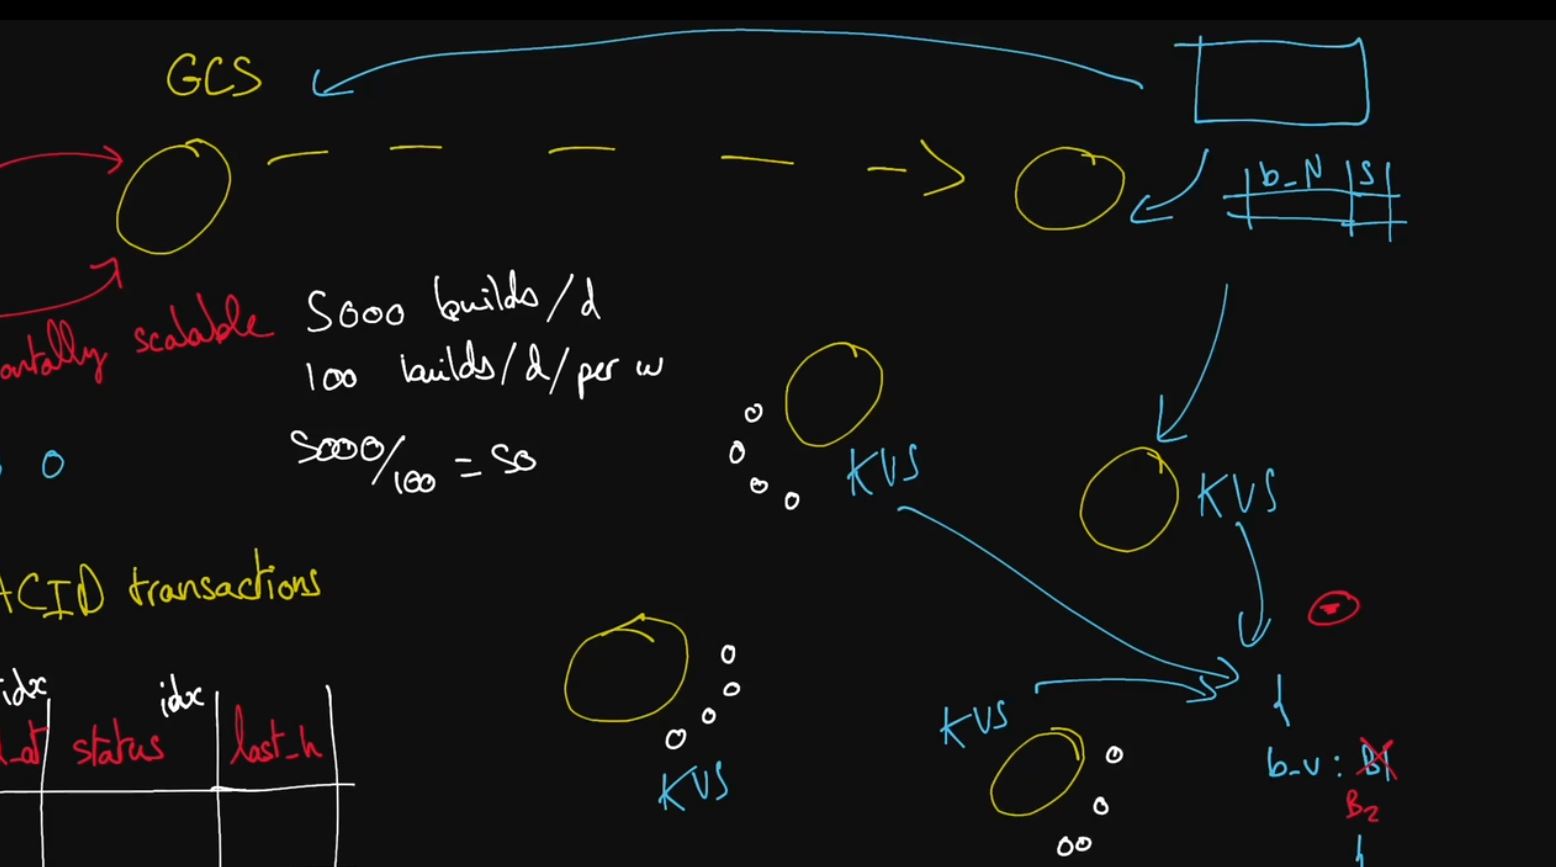 GCS
b_N | S
ontally scalable
5000 builds/d
100 builds/d/per w
5000/100 = 50
KVS
KVS
ACID transactions
idx
idx
_at
status
last_h
KVS
KVS
b_v : B1
B2